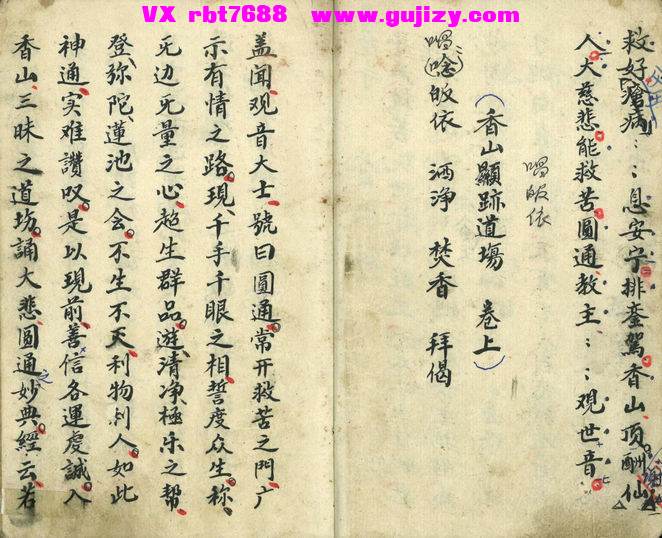 VX rbt7688 www.gujizy.com
救好瘡病：：息安宁排銮駕香山頂酬仙
人大慈悲能救苦圓通教主：：观世音
唱皈依
（香山顯跡道塲 卷上）
皈依 洒浄 焚香 拜偈
盖闻观音大士號曰圓通常开救苦之門广
示有情之路现千手千眼之相誓度众生称
无边无量之心超生群品遊清净極乐之帮
登弥陀蓮池之会不生不灭利物利人如此
神通实难讚叹是以现前善信各運虔誠入
香山三昧之道塲誦大悲圆通妙典經云若